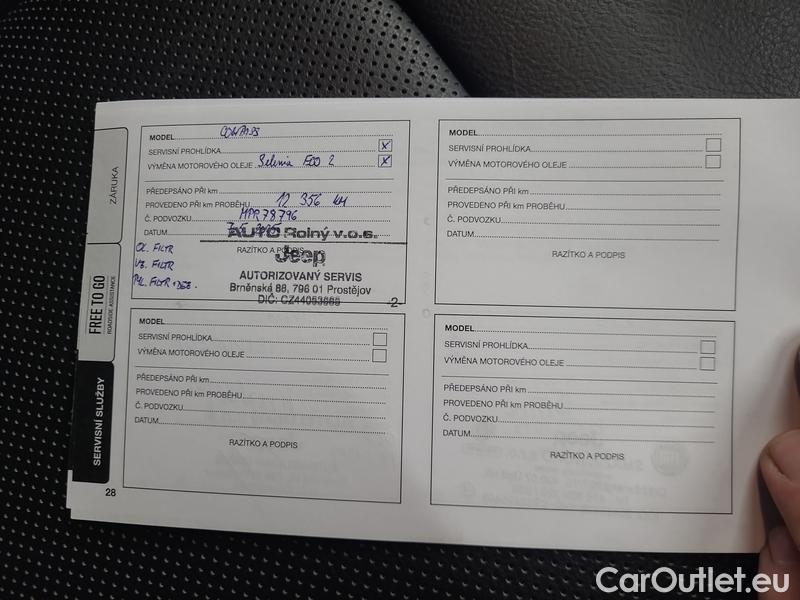 ZÁRUKA
FREE TO GO
ROADSIDE ASSISTANCE
SERVISNÍ SLUŽBY
28
MODEL COMPASS
SERVISNÍ PROHLÍDKA X
VÝMĚNA MOTOROVÉHO OLEJE Selenia ECO 2 X
PŘEDEPSÁNO PŘI km
PROVEDENO PŘI km PROBĚHU 12 356 KM
Č. PODVOZKU MPR78796
DATUM
AUTO Rolný v.o.s.
RAZÍTKO A PODPIS
Jeep
OL. FILTR
VZ. FILTR
PYL. FILTR + DEZ.
AUTORIZOVANÝ SERVIS
Brněnská 88, 796 01 Prostějov
DIČ: CZ44053665
-2-
MODEL
SERVISNÍ PROHLÍDKA
VÝMĚNA MOTOROVÉHO OLEJE
PŘEDEPSÁNO PŘI km
PROVEDENO PŘI km PROBĚHU
Č. PODVOZKU
DATUM
RAZÍTKO A PODPIS
MODEL
SERVISNÍ PROHLÍDKA
VÝMĚNA MOTOROVÉHO OLEJE
PŘEDEPSÁNO PŘI km
PROVEDENO PŘI km PROBĚHU
Č. PODVOZKU
DATUM
RAZÍTKO A PODPIS
MODEL
SERVISNÍ PROHLÍDKA
VÝMĚNA MOTOROVÉHO OLEJE
PŘEDEPSÁNO PŘI km
PROVEDENO PŘI km PROBĚHU
Č. PODVOZKU
DATUM
RAZÍTKO A PODPIS
CarOutlet.eu